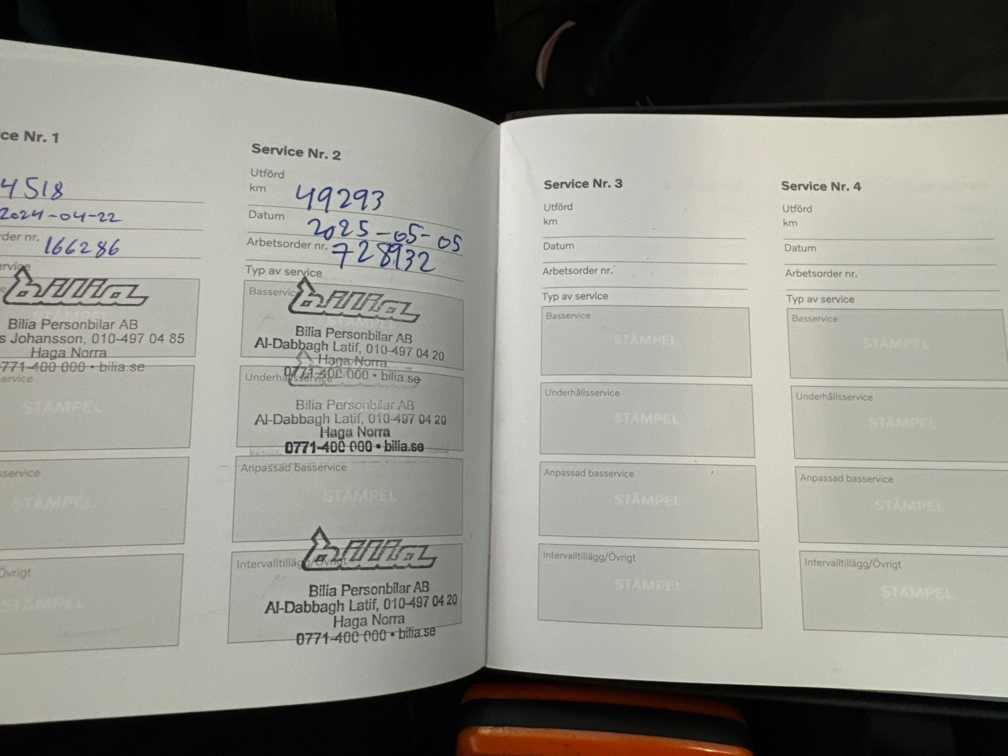 ce Nr. 1
4518
2024-04-22
der nr. 166286
bilia
Bilia Personbilar AB
s Johansson, 010-497 04 85
Haga Norra
0771-400 000 • bilia.se
ervice
STÄMPEL
sservice
STÄMPEL
Övrigt
STÄMPEL
Service Nr. 2
Utförd
km 49293
Datum 2025-05-05
Arbetsorder nr. 728932
Typ av service
Basservice
bilia
Bilia Personbilar AB
Al-Dabbagh Latif, 010-497 04 20
Haga Norra
0771-400 000 • bilia.se
Underhållsservice
Bilia Personbilar AB
Al-Dabbagh Latif, 010-497 04 20
Haga Norra
0771-400 000 • bilia.se
Anpassad basservice
STÄMPEL
Intervalltillägg/Övrigt
bilia
Bilia Personbilar AB
Al-Dabbagh Latif, 010-497 04 20
Haga Norra
0771-400 000 • bilia.se
Service Nr. 3
Utförd
km
Datum
Arbetsorder nr.
Typ av service
Basservice
STÄMPEL
Underhållsservice
STÄMPEL
Anpassad basservice
STÄMPEL
Intervalltillägg/Övrigt
STÄMPEL
Service Nr. 4
Utförd
km
Datum
Arbetsorder nr.
Typ av service
Basservice
STÄMPEL
Underhållsservice
STÄMPEL
Anpassad basservice
STÄMPEL
Intervalltillägg/Övrigt
STÄMPEL